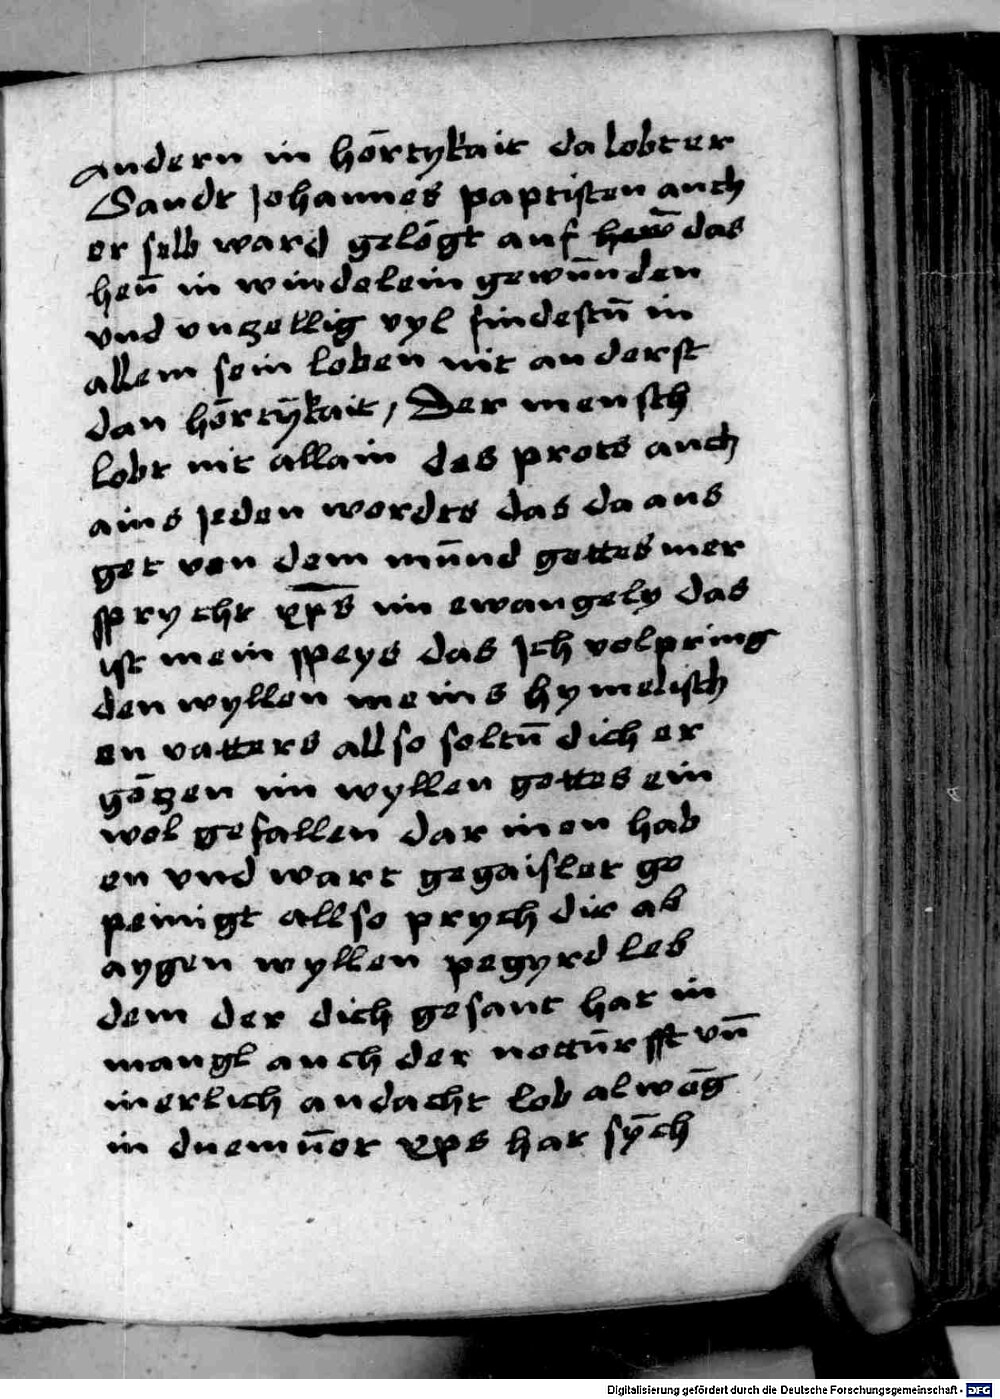 andern in hōrtykait da lobt er
Sandt Johannes paptisten auch
er selb ward gelōgt auf das
heū in windelein gewūnden
vnd vnzellig vyl findestū in
allem sein loben nit anderst
dan hōrtȳkait, Der mensch
lobt nit allain des prots auch
ains Jeden wordts das da aus
get von dem mūnd gottes mer
sprycht xp̄s im ewangely das
ist mein speys das Jch volpring
den wyllen meins hymelisch
en vatters allso soltū dich er
gōtzen im wyllen gottes ein
wol gefallen dar inen hab
en vnd wart gegaislet ge
peinigt allso prych dir ab
aygen wyllen pegyrd leb
dem der dich gesant hat in
mangl auch der nottūrfft vn̄
inerlich andacht lob alwēg
in duemūor xps hat sȳch
Digitalisierung gefördert durch die Deutsche Forschungsgemeinschaft - DFG